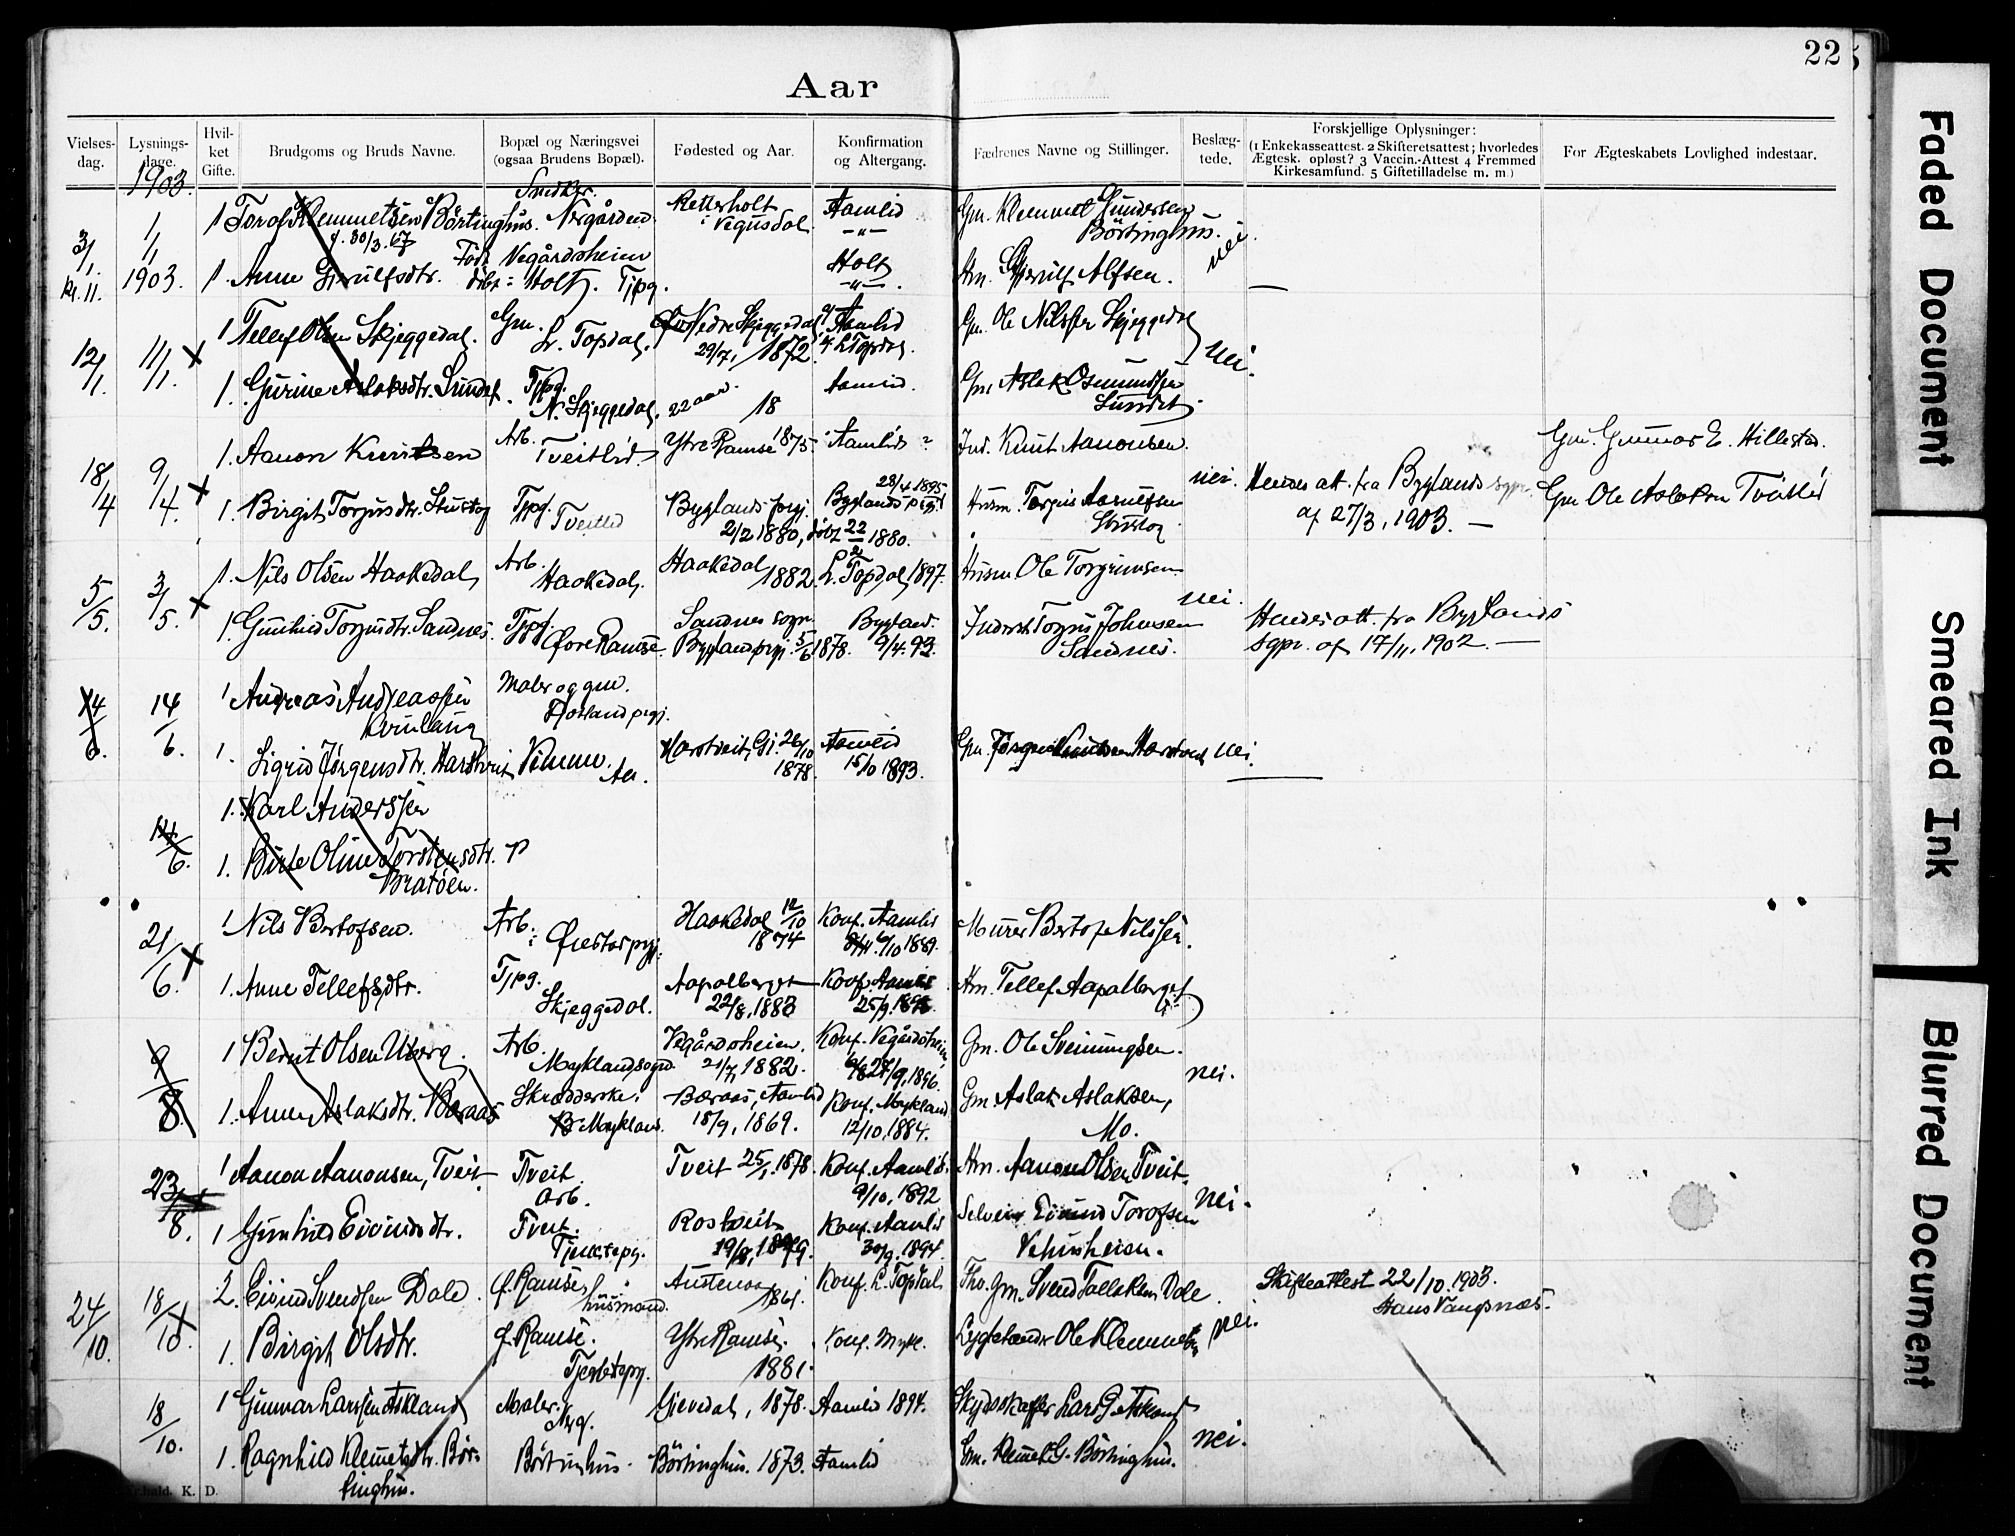 22
Aar
Vielses-
dag.
Lysnings-
dage.
Hvil-
ket
Gifte.
Brudgoms og Bruds Navne.
Bopæl og Næringsvei
(ogsaa Brudens Bopæl).
Fødested og Aar.
Konfirmation
og Altergang.
Fædrenes Navne og Stillinger.
Beslæg-
tede.
Forskjellige Oplysninger:
(1 Enkekasseattest. 2 Skifteretsattest; hvorledes
Ægtesk. opløst? 3 Vaccin.-Attest 4 Fremmed
Kirkesamfund. 5 Giftetilladelse m. m.)
For Ægteskabets Lovlighed indestaar.
1903.
1 Torof Klemmetsen Börtinghus.
f. 30/3.67
Snedker.
Nergården
i Vegusdal
Aamlid
-"-
Gm. Klemmet Gundersen
Börtinghus.
nei.
3/1. 1/1 1903.
1. Anne
Vegårdsheien
Holt. Tjpg.
Holt
-"-.
Alfsen.
12/1. 11/1. X
1 Tellef Olsen Skjeggedal.
Gm.
L. Topdal.
Nedre Skjeggedal
29/7, 1872.
Aamlid
L Topdal.
Gm. Ole Nilssen Skjeggedal
nei.
1. Gurine Aslaksdtr. Lundet.
Tjpg.
N. Skjeggedal.
22 aar. 18
Aamlid.
Gm. Aslak Osmundsen
Lundet.
18/4 9/4. X
1. Aanon Knutsen
Arb.
Tveitlid
Ytre Ramse 1875.
Aamlid ?
Ind. Knut Aanonsen.
nei.
Gm. Gunnar E. Hillestad.
1. Birgit Torjusdtr.
Tjpg.
Tveitlid
Byglands prgj.
2/2 1880, döbt 22/2 1880.
28/4 1895
Byglands prgj.
Husm. Torjus
Hendes att. fra Byglands sgpr.
af 27/3, 1903. —
Gm Ole Aslaksen Tveitlid
5/5. 3/5. X
1. Nils Olsen Haakedal,
Arb.
Haakedal.
Haakedal
1882.
L. Topdal, 1897.
Husm. Ole Torgrimsen
nei.
1. Gunhild Torjusdtr. Sandnes.
Tjpg.
Øvre Ramse.
Sandnes sogn
Bygland prgj. 5/6 1878.
Bygland.
9/4. 93.
Torjus Johnsen
Sandnes.
Hendes att. fra Byglands
sgpr. af 17/11, 1902. —
14/6. 14/6.
1 Andreas Andreassen
Kvinlaug
Maler og gm.
prgj.
1. Sigrid Jørgensdtr. Harstveit
Aa.
Harstveit, Gj. 26/10
1878.
Aamlid
15/10 1893.
Gm. Jørgen Knutsen Harstveit
nei.
14/6.
1. Karl Anderssen
1. Birte Oline Torstensdtr.
Bratöen.
21/6. X
1 Nils Bertofsen.
Arb.
i Øiestad prgj.
Haakedal 12/10
1874
Konf. Aamlid
6/10 1889.
Murer Bertof Nilssen.
1. Anne Tellefsdtr.
Tjpg.
Skjeggedal.
Aapalberget
22/8, 1883
Konf. Aamlid
Hm. Tellef Aapalberget
9/8.
1 Bernt Olsen Uberg.
Arb.
Myklandsogn.
Vegårdsheien.
21/7, 1882.
Konf. Vegårdsheien
27/9, 1896.
Gm. Ole Sveinungsen.
nei.
1. Anne Aslaksdtr. Beraas
Skrædderske.
Mykland.
Beraas, Aamlid
18/9, 1869.
Konf. Mykland
12/10, 1884.
Gm. Aslak Aslaksen,
Mo.
23/8.
1 Aanon Aanonsen, Tveit
Tveit.
arb.
Tveit 25/1, 1878.
Konf. Aamlid.
9/10, 1892
Hm. Aanon Olsen Tveit
nei.
1 Gunhild Eivindsdtr.
Tveit.
Tjenestepg.
Rostveit
19/8, 1879.
Konf. Aamlid
30/9. 1894.
Selveier Eivind Torofsen
Vehusheien.
24/10. 18/10. X
2. Eivind Svendsen Dale.
Ø. Ramse,
husmand.
Austenaa
1861.
Konf. L. Topdal
Fhv. Gm. Svend Tallaksen Dale.
nei.
Skifteattest 22/10. 1903.
Hans Vangsnæs.
1. Birgit Olsdtr.
Ø. Ramse.
Tjenestepg.
Ytre Ramse.
1881.
Konf. Mykl.
Ole Klemmetsen
18/10.
1 Gunvar Larssen Askland
Maler.
Gievedal, 1878.
Aamlid 1894.
Skydsskaffer Lars G. Askland
nei.
1. Ragnhild Klemetsdtr. Bör-
tinghus.
Börtinghus.
Börtinghus. 1873.
Aamlid
Gm. Klemet G. Börtinghus.
K. D.
Faded Document
Smeared Ink
Blurred Document